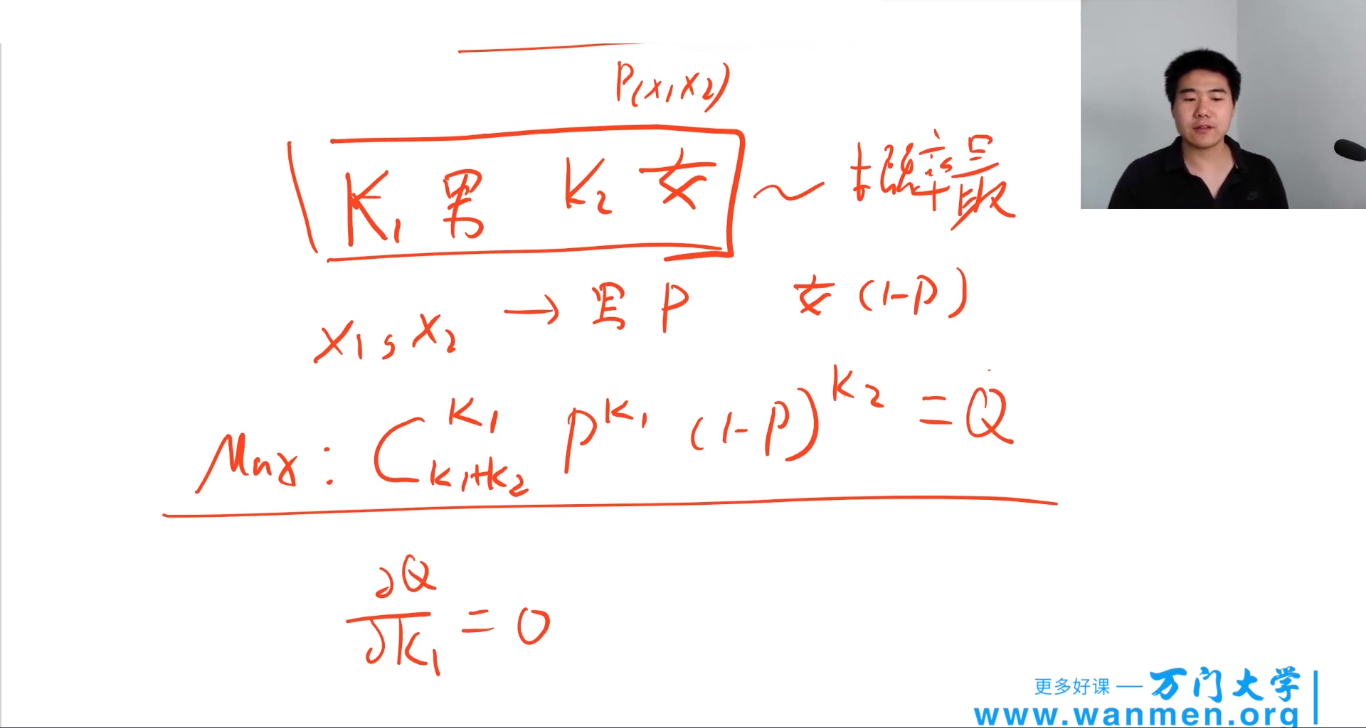 P(x₁x₂)
K₁ 男 K₂ 女 ~ 概率最
x₁, x₂ → 男 P 女 (1-P)
Max: C_{K₁+K₂}^{K₁} P^{K₁} (1-P)^{K₂} = Q
∂Q/∂K₁ = 0
更多好课 — 万门大学
www.wanmen.org